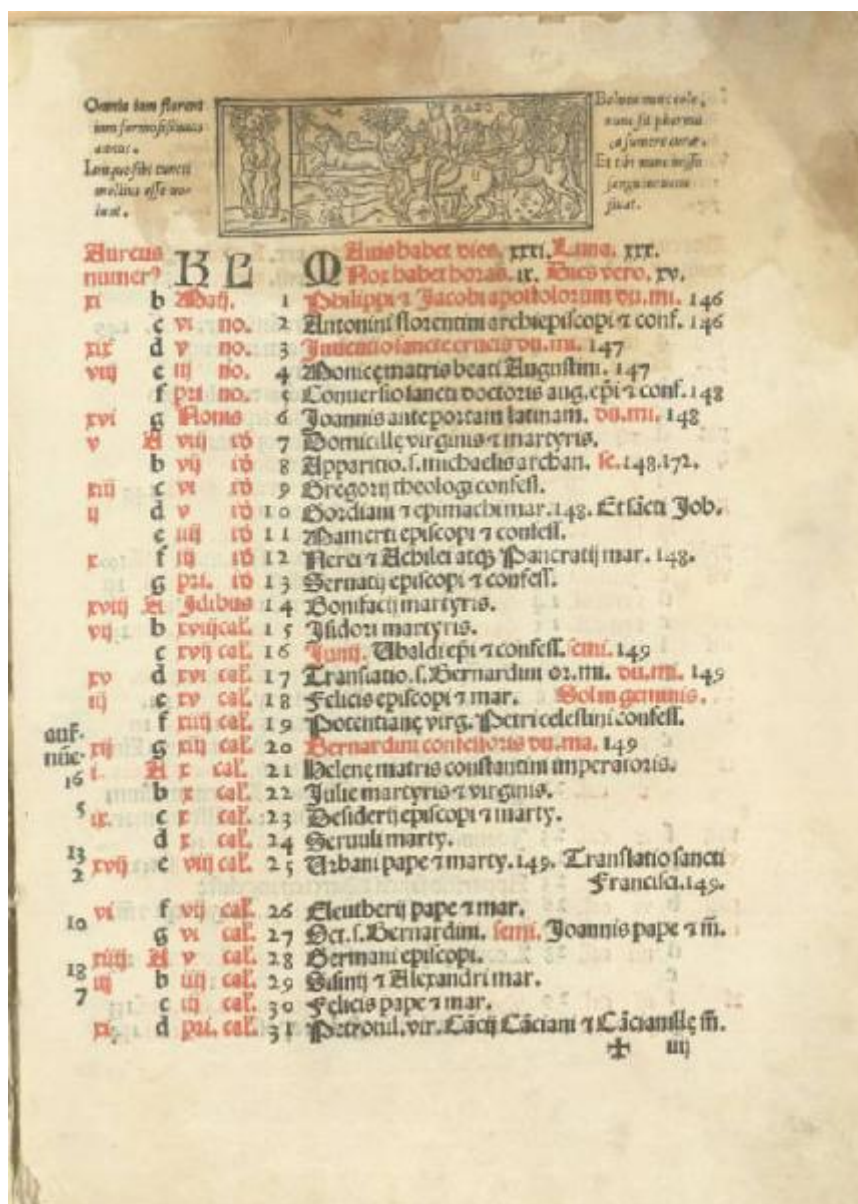 Omnia tum florent
tum formosissimus
annus.
cuncti
mollius esse
Balnea nunc cole,
nunc sit pharma
ca sumere curae.
Et tibi nunc
Aureus
numer⁹ K L
Maius habet dies. xxxi. Luna. xxx.
Nox habet horas. ix. Dies vero. xv.
xi b Maij. 1 Philippi ⁊ Jacobi apostolorum du. mi. 146
c vi no. 2 Antonini florentini archiepiscopi ⁊ conf. 146
xix d v no. 3 Inuentio sancte crucis du. mi. 147
viij e iij no. 4 Monicę matris beati Augustini. 147
f pri no. 5 Conuersio sancti doctoris aug. ep̄i ⁊ conf. 148
xvi g Nonis 6 Joannis ante portam latinam. du. mi. 148
v A viij id 7 Domicillę virginis ⁊ martyris.
b vij id 8 Apparitio. s. michaelis archan. 148. 172.
xiij c vi id 9 Gregorij theologi confess.
ij d v id 10 Gordiani ⁊ epimachi mar. 148. Et sācti Job.
e iiij id 11 Mamerti episcopi ⁊ confess.
x f iij id 12 Nerei ⁊ Achilei atq; Pancratij mar. 148.
g pri. id 13 Seruatij episcopi ⁊ confess.
xviij A Idibus 14 Bonifacij martyris.
vij b xviij cal. 15 Isidori martyris.
c xvij cal. 16 Junij. Ubaldi ep̄i ⁊ confess. semi. 149
xv d xvi cal. 17 Translatio. s. Bernardini or. mi. du. mi. 149
iij e xv cal. 18 Felicis episcopi ⁊ mar. Sol in geminis.
f xiiij cal. 19 Potentianę virg. Petri celestini confess.
aur̄.
nūe.
xij g xiij cal. 20 Bernardini confessoris du. ma. 149
16 i. A x cal. 21 Helenę matris constantini imperatoris.
b x cal. 22 Julie martyris ⁊ virginis.
5 ix. c x cal. 23 Desiderij episcopi ⁊ marty.
d x cal. 24 Seruuli marty.
13
2 xvij e viij cal. 25 Urbani pape ⁊ marty. 149. Translatio sancti
Francisci. 149.
vi f vij cal. 26 Eleutherij pape ⁊ mar.
10 g vi cal. 27 Oct. s. Bernardini. semi. Joannis pape ⁊ m̄.
xiiij A v cal. 28 Germani episcopi.
18 iij b iiij cal. 29 Sisinij ⁊ Alexandri mar.
7 c iij cal. 30 Felicis pape ⁊ mar.
xi d pri. cal. 31 Petronil. vir. Cācij Cāciani ⁊ Cācianillę m̄.
✠ iiij